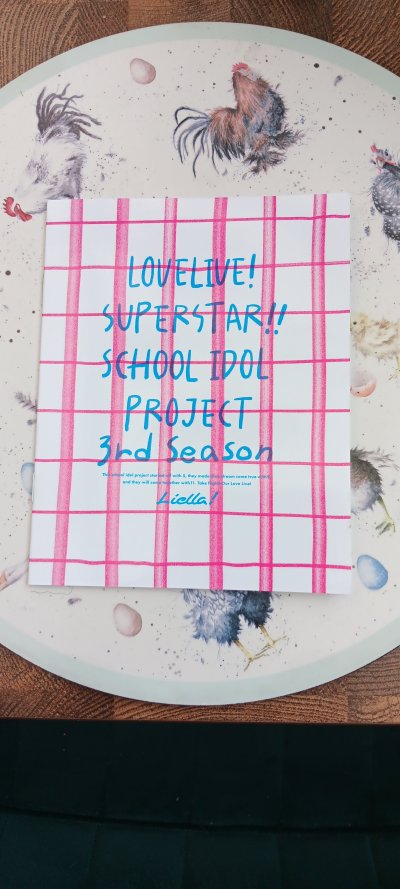 LOVELIVE!
SUPERSTAR!!
SCHOOL IDOL
PROJECT
3rd Season
This school idol project started off with 5, they made their dream come true with 9,
and they will come together with 11. Take Flight! Our Love Live!
Liella!